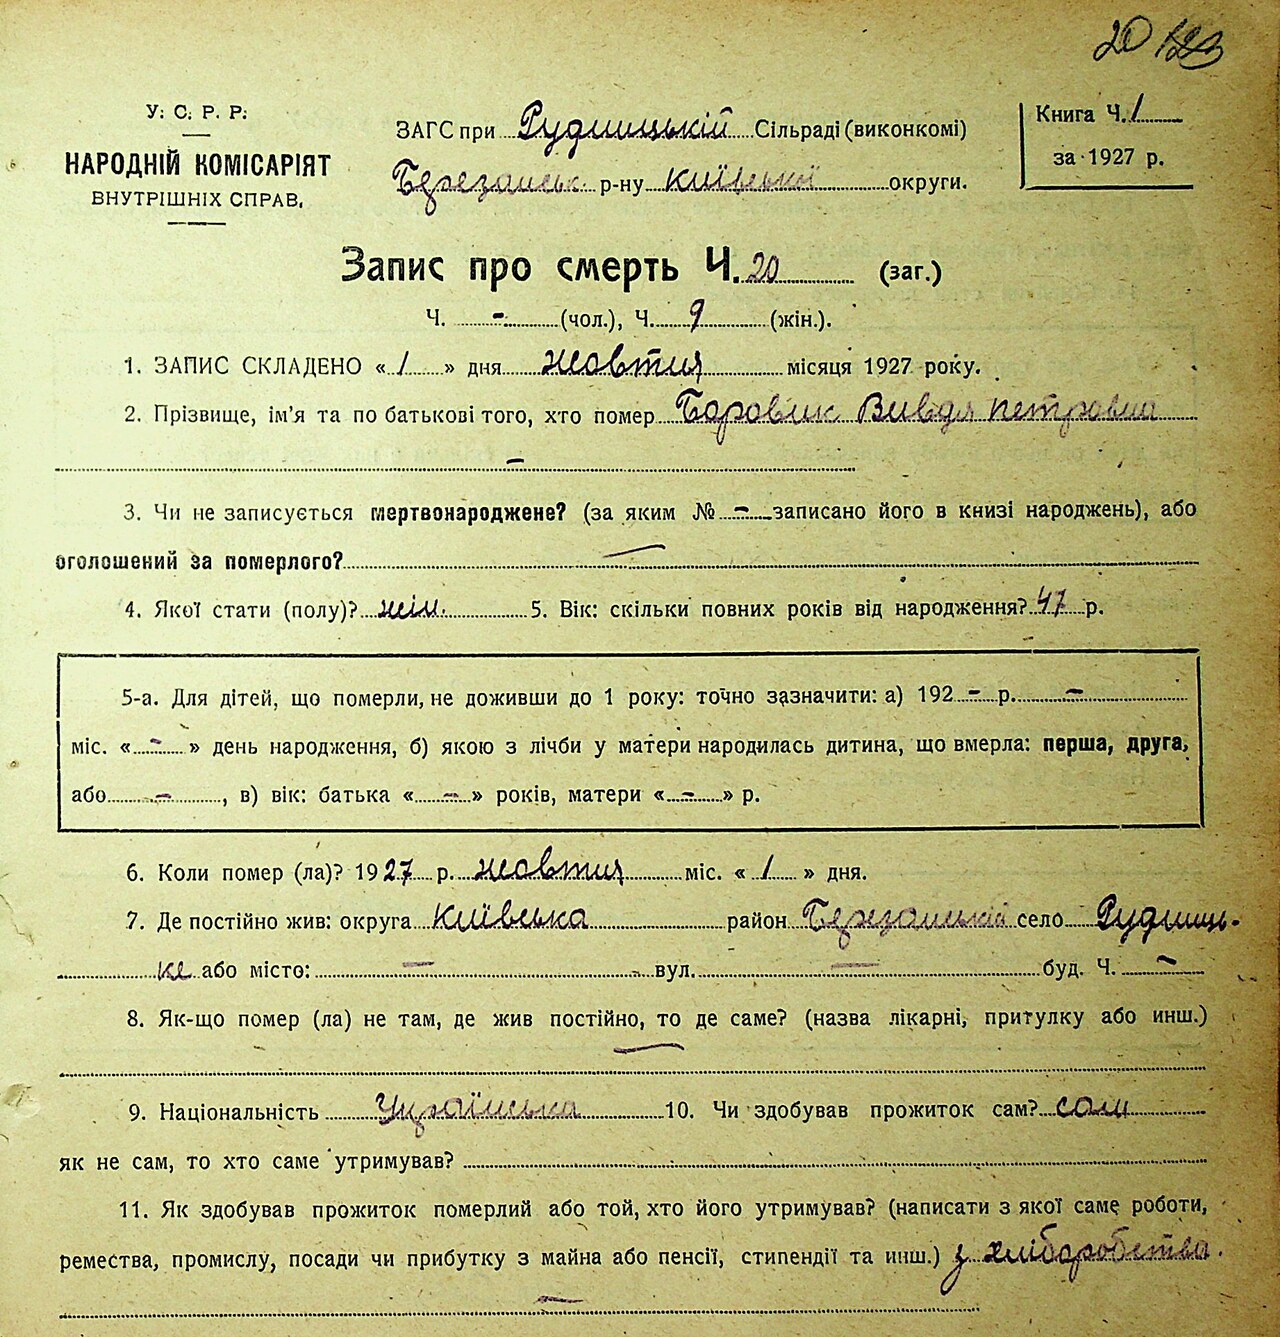 20 123
У. С. Р. Р.
НАРОДНІЙ КОМІСАРІЯТ
ВНУТРІШНІХ СПРАВ.
ЗАГС при Рудницькій Сільраді (виконкомі)
Березанськ. р-ну Київської округи.
Книга Ч. 1
за 1927 р.
Запис про смерть Ч. 20 (заг.)
Ч. - (чол.), Ч. 9 (жін.).
1. ЗАПИС СКЛАДЕНО « 1 » дня жовтня місяця 1927 року.
2. Прізвище, ім'я та по батькові того, хто помер Боровик Вивдя Петровна
-
3. Чи не записується мертвонароджене? (за яким № - записано його в книзі народжень), або
оголошений за померлого? -
4. Якої стати (полу)? жін. 5. Вік: скільки повних років від народження? 47 р.
5-а. Для дітей, що померли, не доживши до 1 року: точно зазначити: а) 192 - р. -
міс. « - » день народження, б) якою з лічби у матери народилась дитина, що вмерла: перша, друга,
або - , в) вік: батька « - » років, матери « - » р.
6. Коли помер (ла)? 1927 р. жовтня міс. « 1 » дня.
7. Де постійно жив: округа Київська район Березанській село Рудниць-
ке або місто: - вул. - буд. Ч. -
8. Як-що помер (ла) не там, де жив постійно, то де саме? (назва лікарні, притулку або инш.)
-
9. Національність Українська 10. Чи здобував прожиток сам? сам
як не сам, то хто саме утримував?
11. Як здобував прожиток померлий або той, хто його утримував? (написати з якої саме роботи,
ремества, промислу, посади чи прибутку з майна або пенсії, стипендії та инш.) з хліборобства.
-